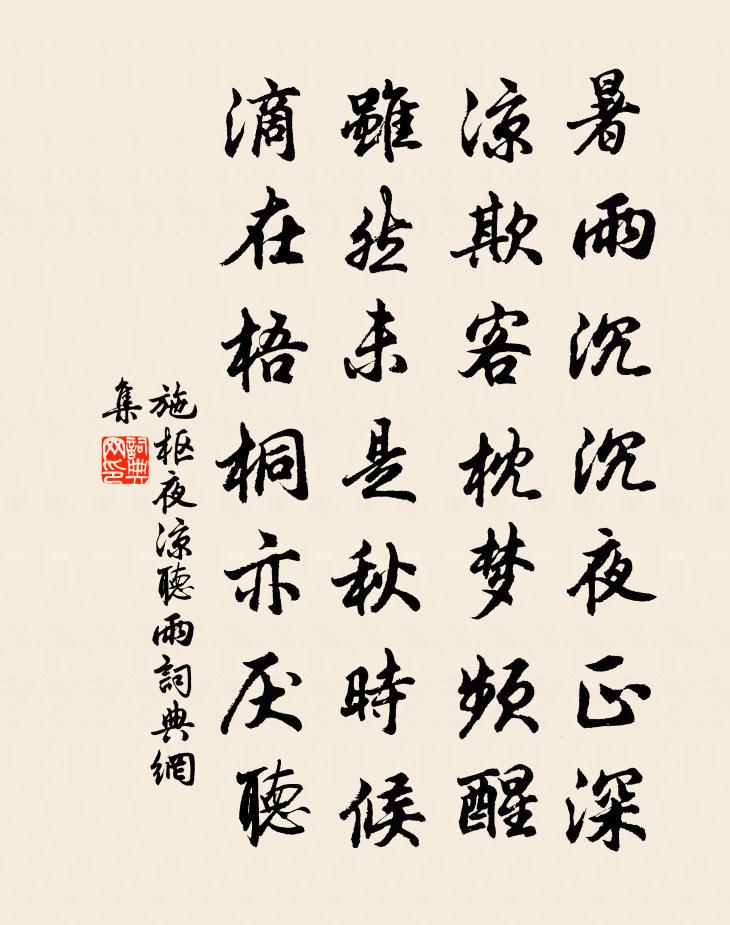 暑雨沉沉夜正深
凉欺客枕梦頻醒
雖然未是秋時候
滴在梧桐亦厌聽
施枢夜凉聽雨詞典網
集
詞典网印